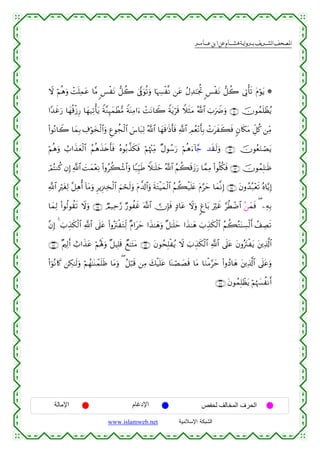 المصحف الشريف برواية هشام عن ابن عامر
يَوْمَ تَأْتِى كُلُّ نَفْسٍ تُجَٰدِلُ عَن نَّفْسِهَا وَتُوَفَّىٰ كُلُّ نَفْسٍ مَّا عَمِلَتْ وَهُمْ لَا
يُظْلَمُونَ وَضَرَبَ ٱللَّهُ مَثَلًا قَرْيَةً كَانَتْ ءَامِنَةً مُّطْمَئِنَّةً يَأْتِيهَا رِزْقُهَا رَغَدًا
مِّن كُلِّ مَكَانٍ فَكَفَرَتْ بِأَنْعُمِ ٱللَّهِ فَأَذَٰقَهَا ٱللَّهُ لِبَاسَ ٱلْجُوعِ وَٱلْخَوْفِ بِمَا كَانُوا۟
يَصْنَعُونَ وَلَقَد جَّآءَهُمْ رَسُولٌ مِّنْهُمْ فَكَذَّبُوهُ فَأَخَذَهُمُ ٱلْعَذَابُ وَهُمْ
ظَٰلِمُونَ فَكُلُوا۟ مِمَّا رَزَقَكُمُ ٱللَّهُ حَلَٰلًا طَيِّبًا وَٱشْكُرُوا۟ نِعْمَتَ ٱللَّهِ إِن كُنتُمْ
إِيَّاهُ تَعْبُدُونَ إِنَّمَا حَرَّمَ عَلَيْكُمُ ٱلْمَيْتَةَ وَٱلدَّمَ وَلَحْمَ ٱلْخِنزِيرِ وَمَآ أُهِلَّ لِغَيْرِ ٱللَّهِ
بِهِۦ فَمَنُ ٱضْطُرَّ غَيْرَ بَاغٍ وَلَا عَادٍ فَإِنَّ ٱللَّهَ غَفُورٌ رَّحِيمٌ وَلَا تَقُولُوا۟ لِمَا
تَصِفُ أَلْسِنَتُكُمُ ٱلْكَذِبَ هَٰذَا حَلَٰلٌ وَهَٰذَا حَرَامٌ لِّتَفْتَرُوا۟ عَلَى ٱللَّهِ ٱلْكَذِبَ إِنَّ
ٱلَّذِينَ يَفْتَرُونَ عَلَى ٱللَّهِ ٱلْكَذِبَ لَا يُفْلِحُونَ مَتَٰعٌ قَلِيلٌ وَلَهُمْ عَذَابٌ أَلِيمٌ
وَعَلَى ٱلَّذِينَ هَادُوا۟ حَرَّمْنَا مَا قَصَصْنَا عَلَيْكَ مِن قَبْلُ وَمَا ظَلَمْنَٰهُمْ وَلَٰكِن كَانُوٓا۟
أَنفُسَهُمْ يَظْلِمُونَ
الحرف المخالف لحفص الإدغام الإمالة
الشبكة الإسلامية www.islamweb.net